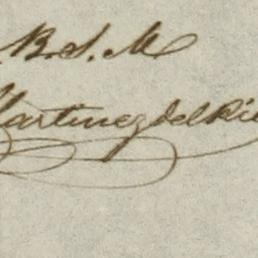 B.S.M
Martinez del Rio